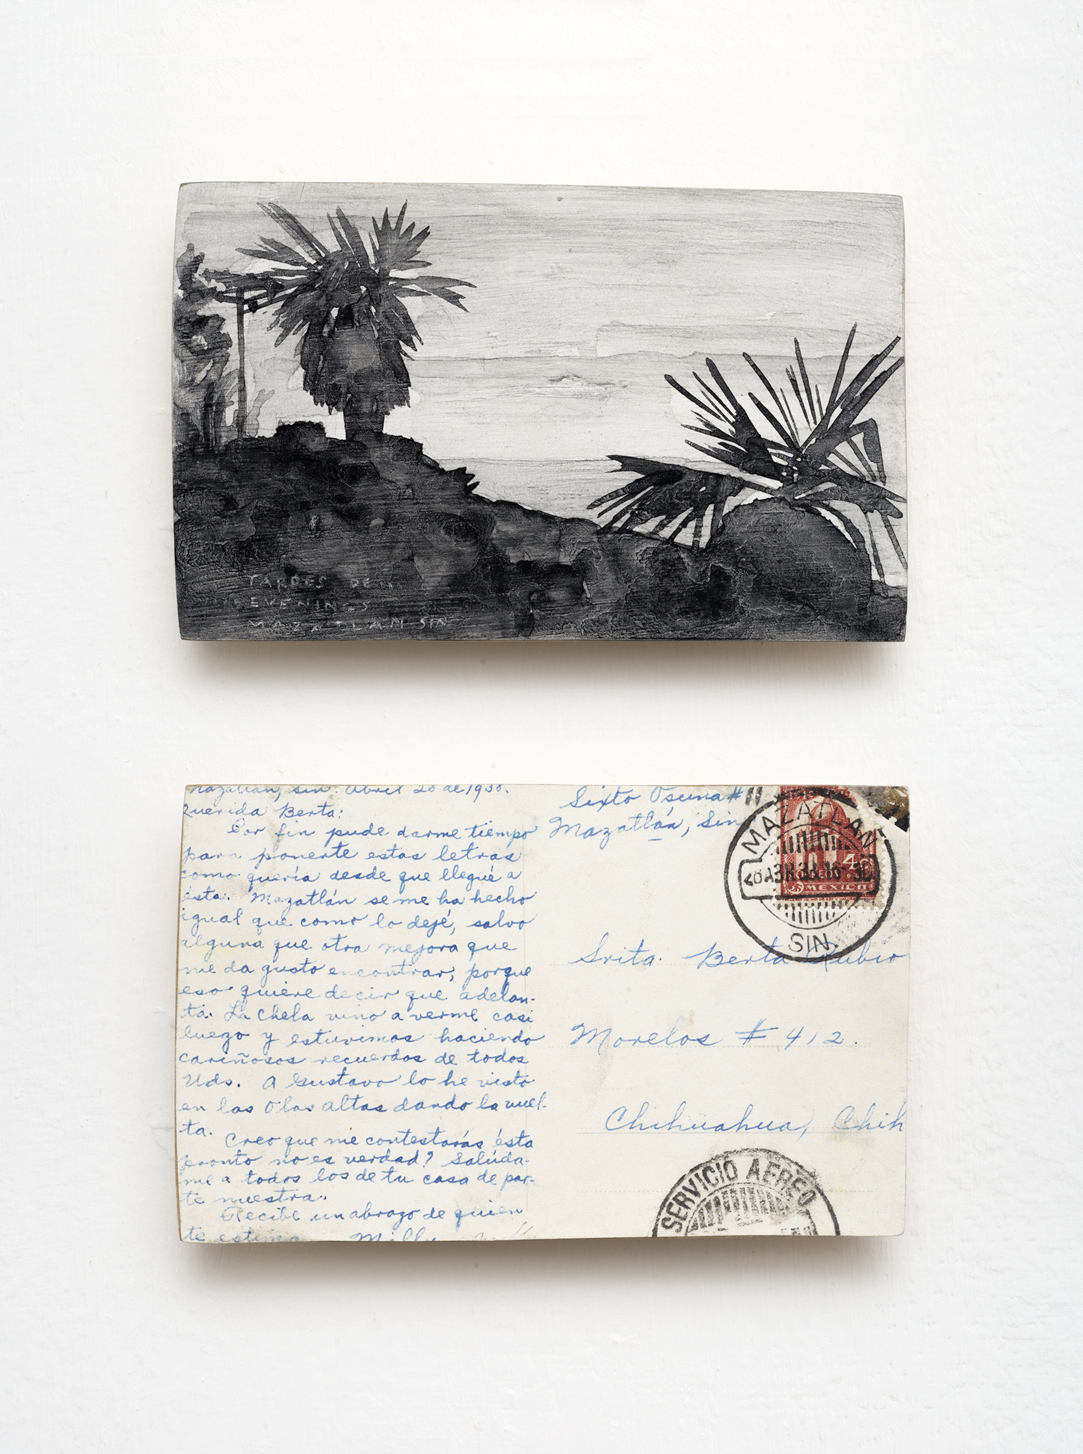 TARDES DE
EVENINGS
MAZATLAN SIN
Mazatlán, Sin. Abril 20 de 1938.
Querida Berta:
Por fin pude darme tiempo
para ponerte estas letras
como quería desde que llegué a
ésta. Mazatlán se me ha hecho
igual que como lo dejé, salvo
alguna que otra mejora que
me da gusto encontrar, porque
eso quiere decir que adelan-
ta. La Chela vino a verme casi
luego y estuvimos haciendo
cariñosos recuerdos de todos
Uds. A Gustavo lo he visto
en las Olas Altas dando la vuel-
ta.
Creo que me contestarás ésta
pronto no es verdad? Salúda-
me a todos los de tu casa de par-
te nuestra.
Recibe un abrazo de quien
te estima Milly
Sixto Osuna # 11
Mazatlán, Sin
MAZATLAN
SIN.
4
MEXICO
Srita. Berta Rubio
Morelos # 412.
Chihuahua, Chih
SERVICIO AEREO